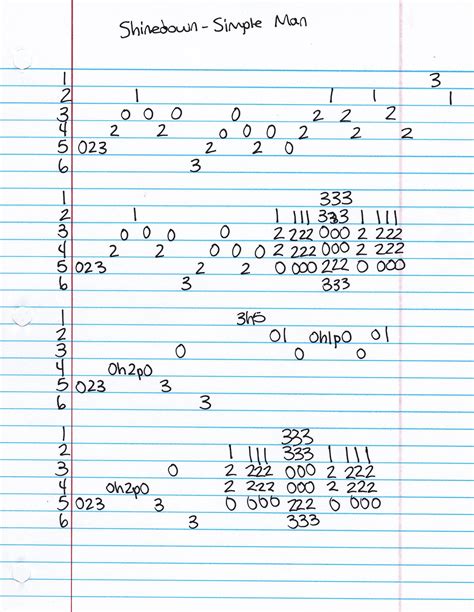 Shinedown - Simple Man
1 3
2 1 1 1 1
3 0 0 0 0 2 2 2
4 2 2 0 0 0 2 2 2
5 023 2 2 0
6 3
1 333
2 1 1 111 333 1 111
3 0 0 0 0 2 222 000 2 222
4 2 2 0 0 0 2 222 000 2 222
5 023 2 2 0 000 222 0 000
6 3 333
1 3h5
2 01 0h1p0 01
3 0 0 0
4 0h2p0
5 023 3
6 3
1 333
2 1 111 333 1 111
3 0 2 222 000 2 222
4 0h2p0 2 222 000 2 222
5 023 3 0 000 222 0 000
6 3 333